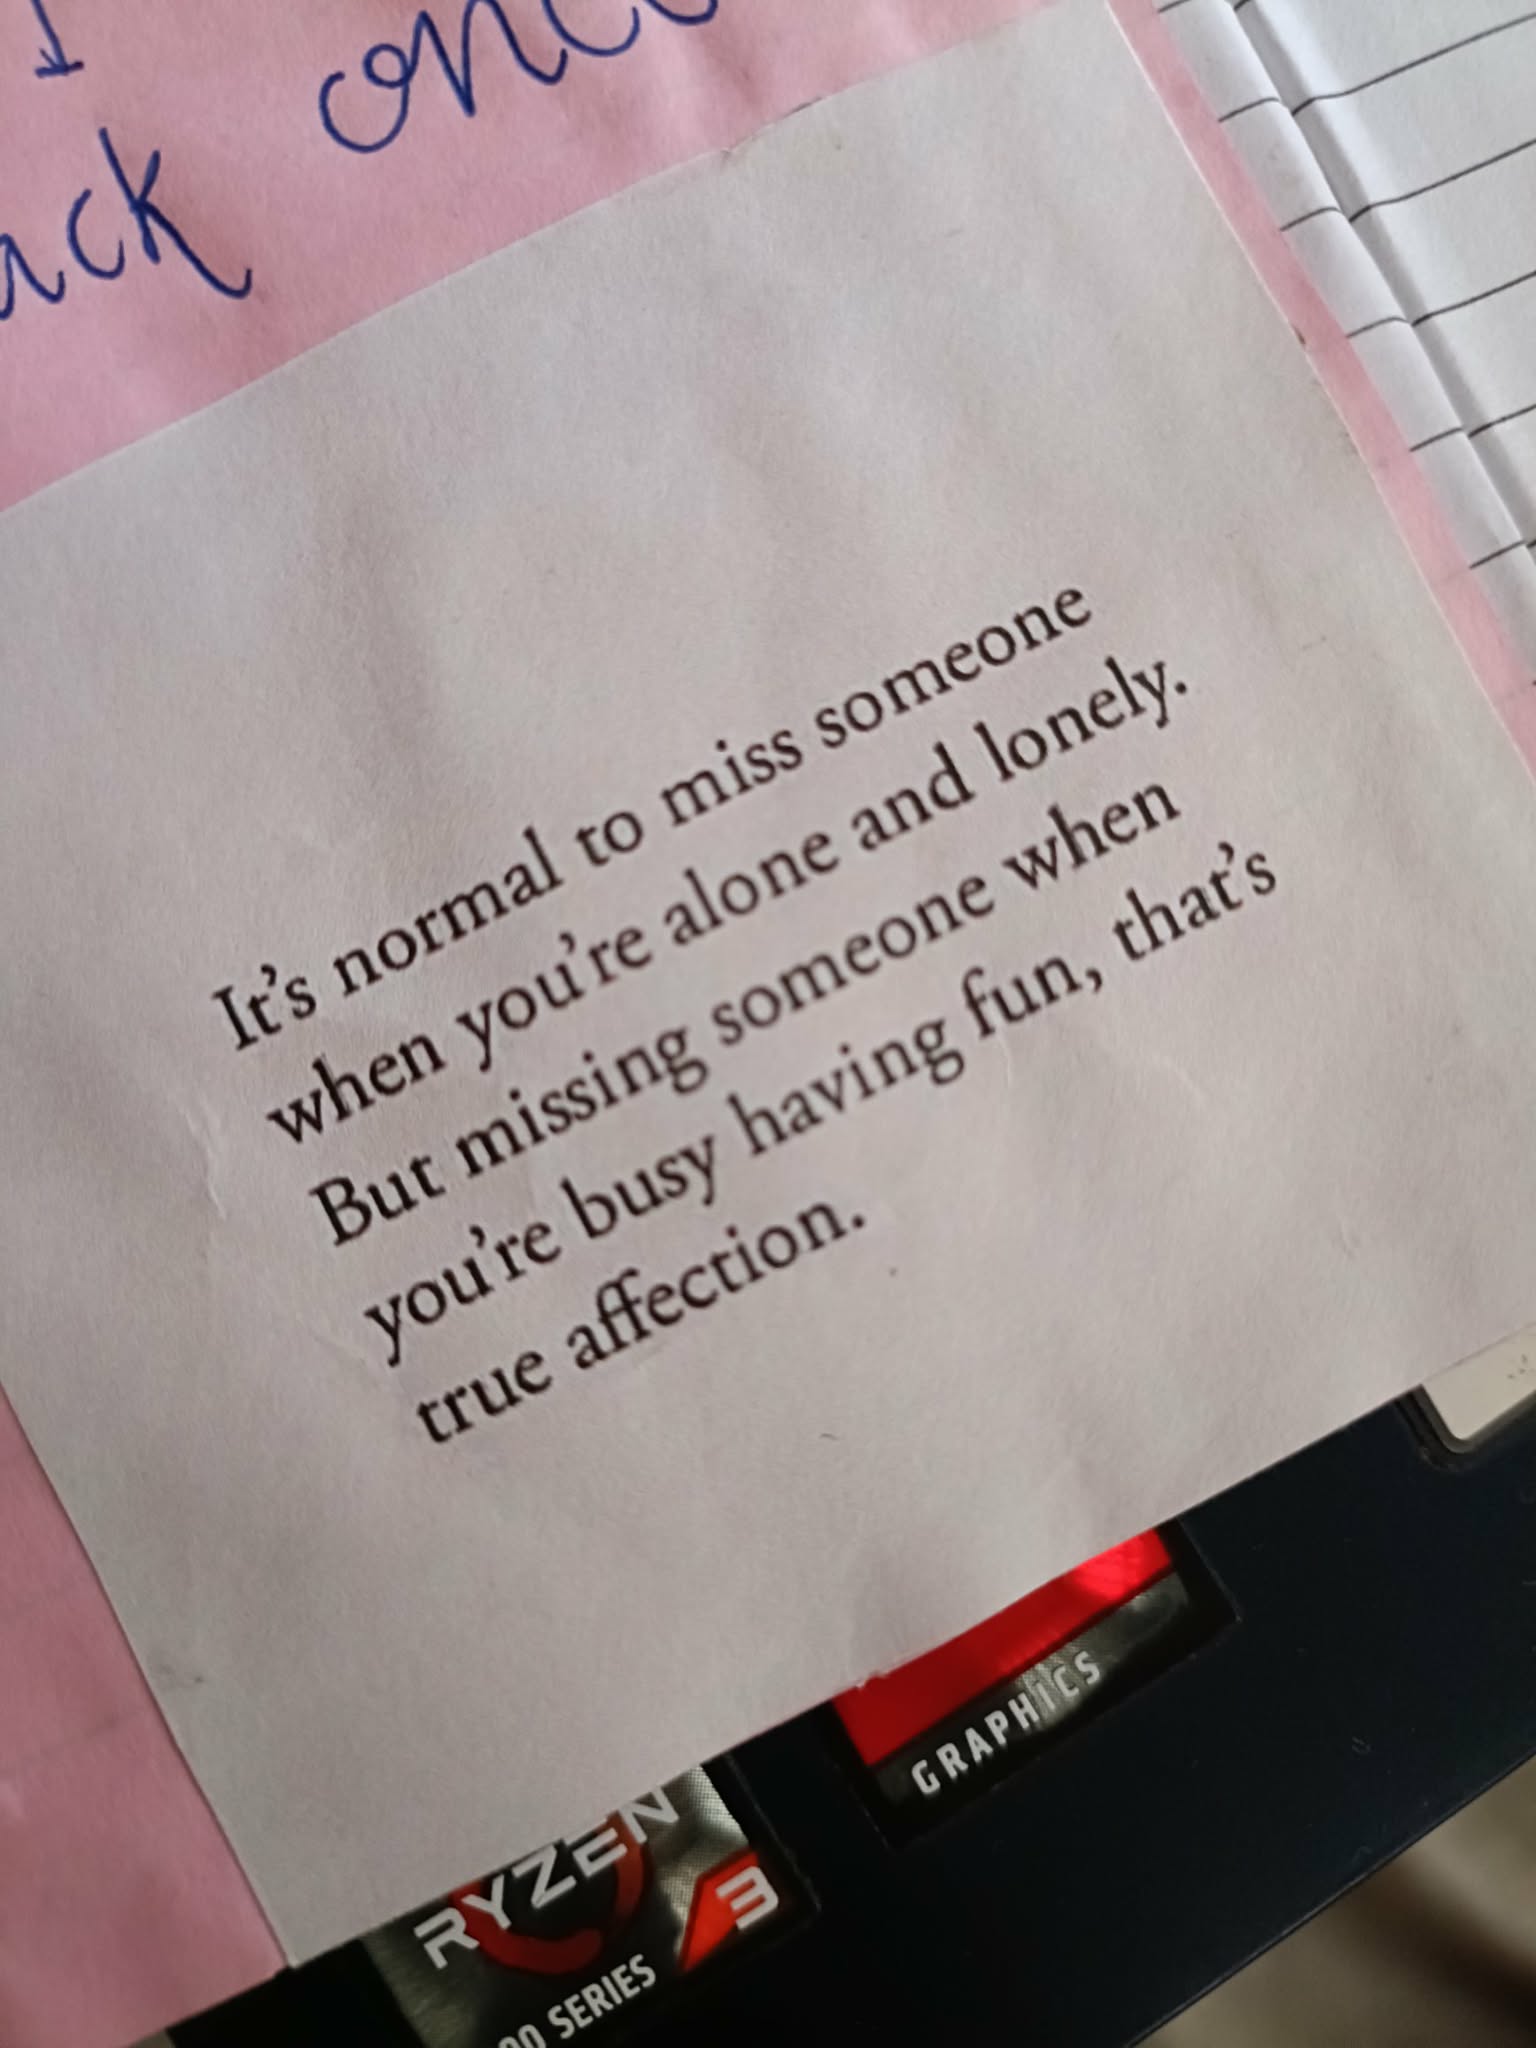 It's normal to miss someone
when you're alone and lonely.
But missing someone when
you're busy having fun, that's
true affection.
GRAPHICS
RYZEN
3
SERIES